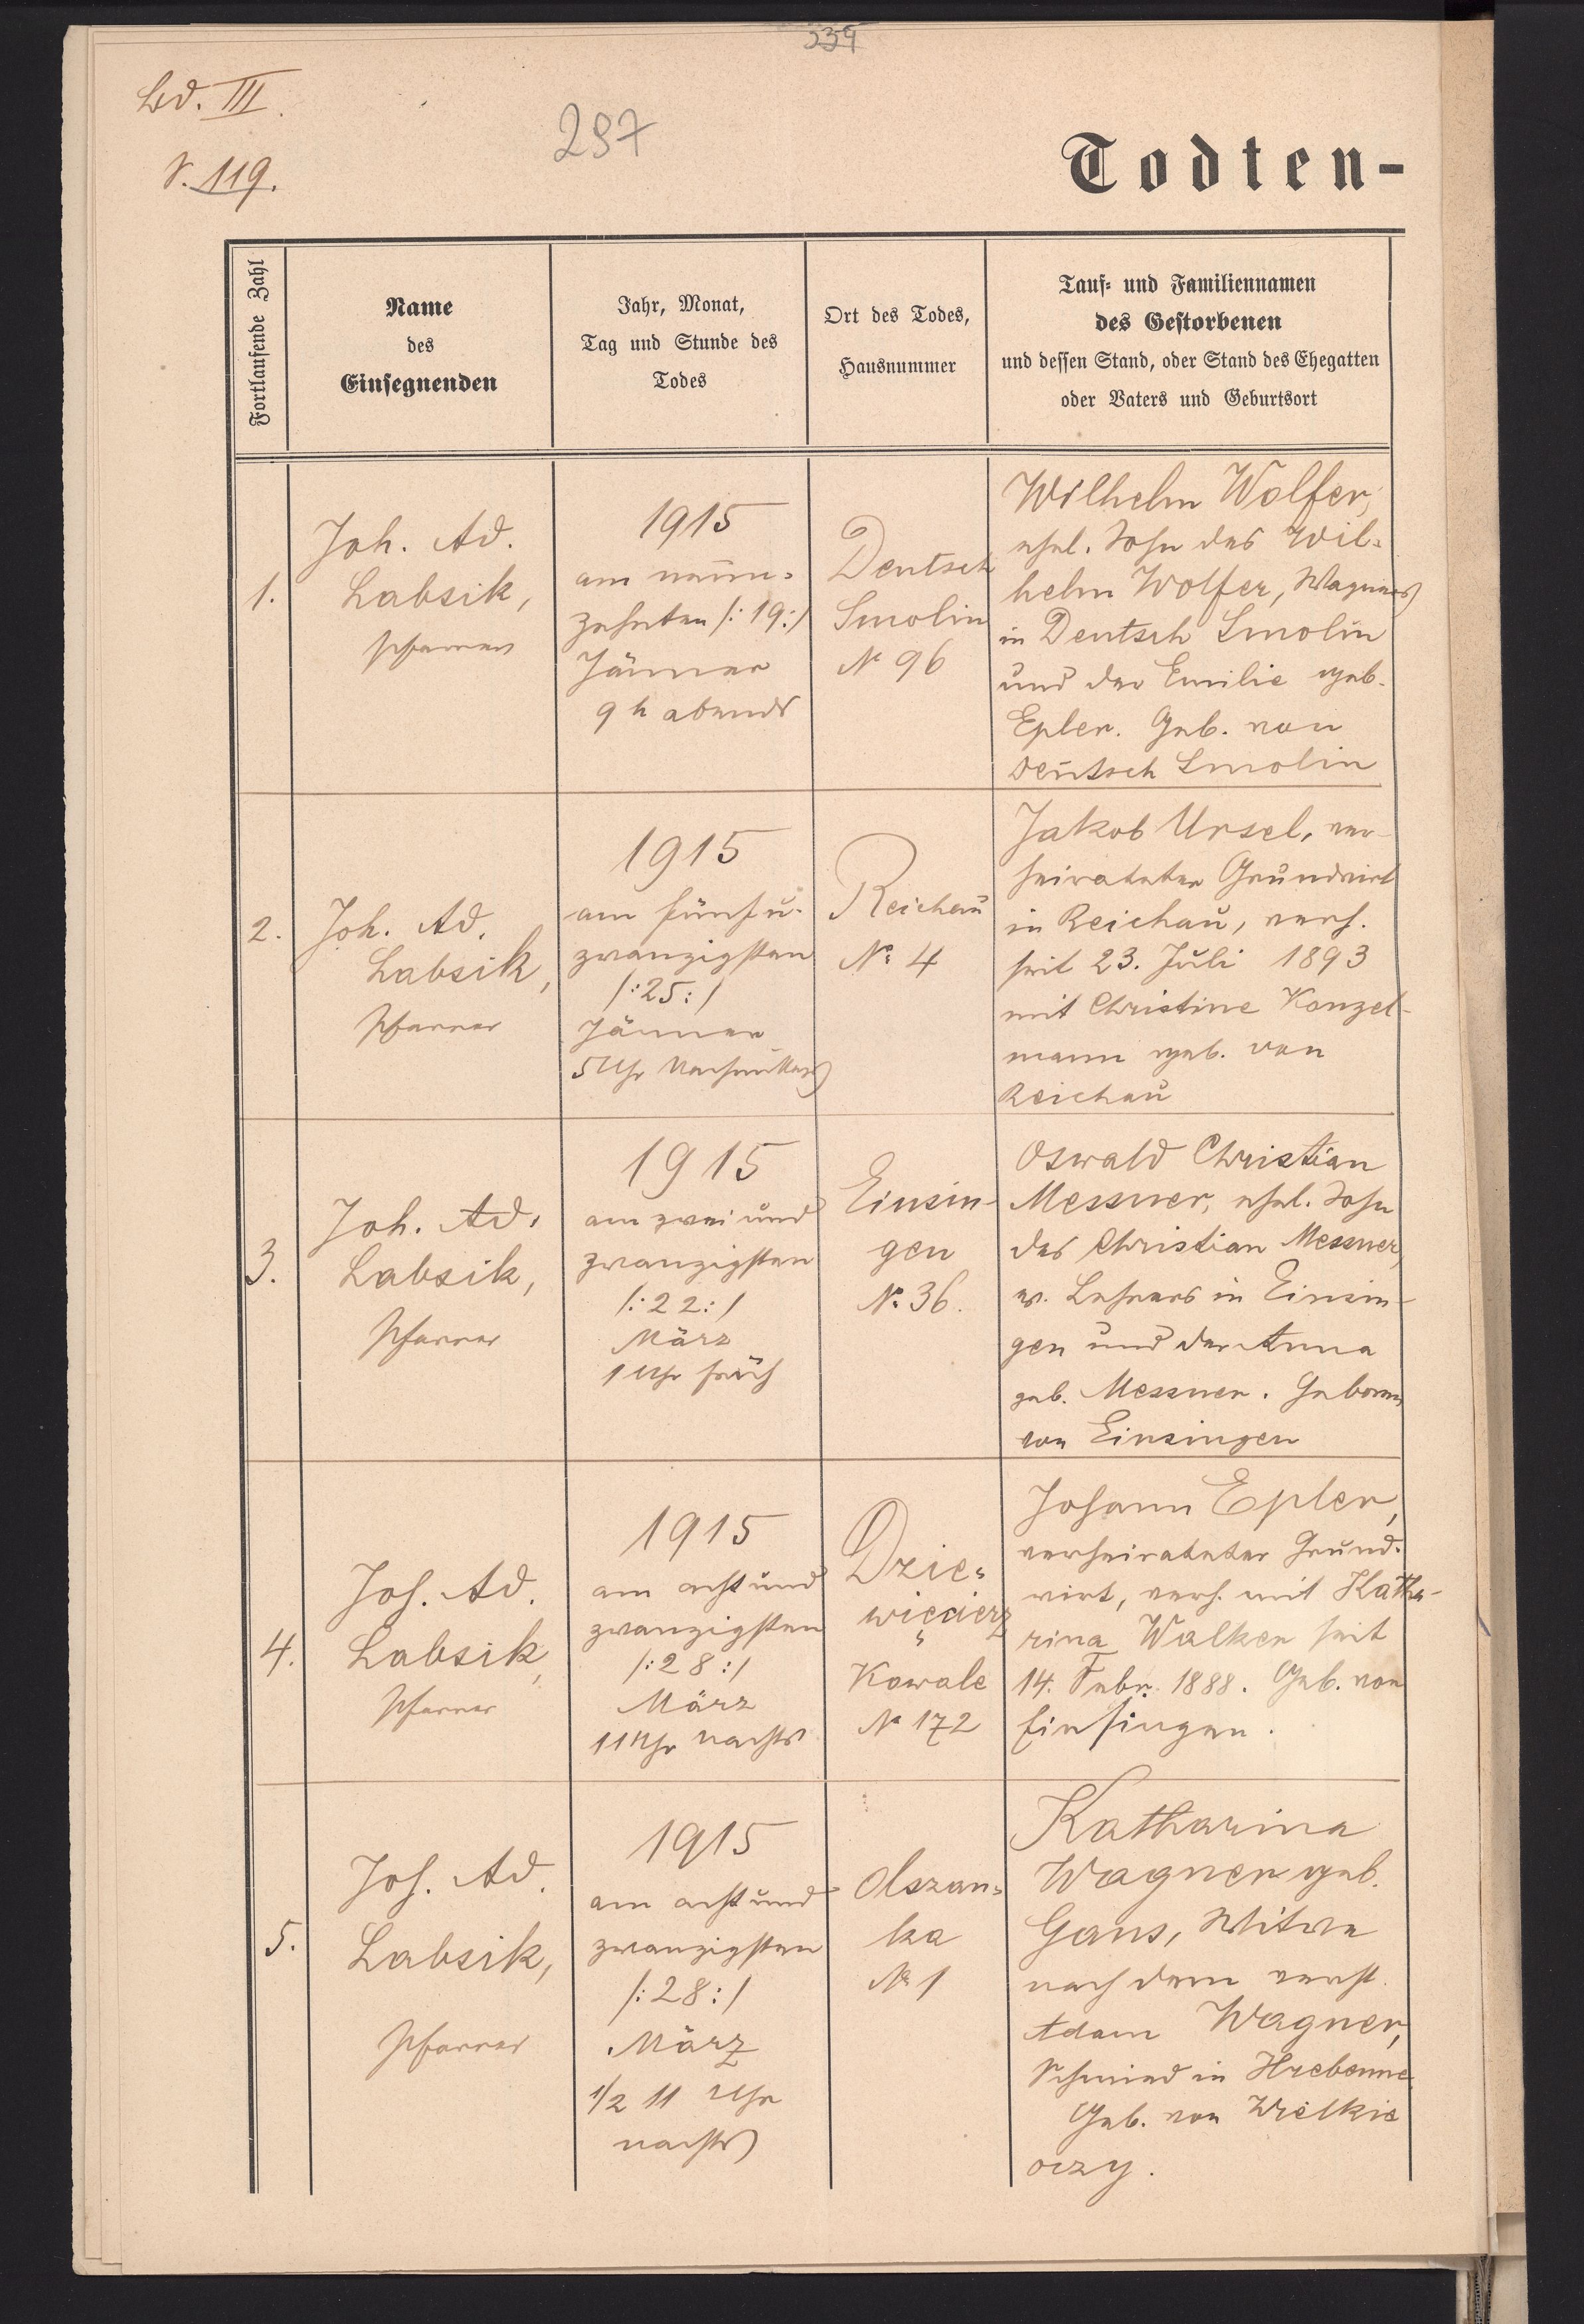 239
Bd. III.
S. 119.
297
Todten-
Fortlaufende Zahl
Name
des
Einsegnenden
Jahr, Monat,
Tag und Stunde des
Todes
Ort des Todes,
Hausnummer
Tauf- und Familiennamen
des Gestorbenen
und dessen Stand, oder Stand des Ehegatten
oder Vaters und Geburtsort
1.
Joh. Ad.
Labsik,
Pfarrer
1915
am neun-
zehnten /:19:/
Jänner
9 h abends
Deutsch
Smolin
№ 96
Wilhelm Wolfer,
ehel. Sohn des Wil-
helm Wolfer, Wagners
in Deutsch Smolin
und der Emilie geb.
Epler. Geb. von
Deutsch Smolin
2.
Joh. Ad.
Labsik,
Pfarrer
1915
am fünfu-
zwanzigsten
/:25:/
Jänner
5 Uhr Nachmittags
Reichau
№ 4
Jakob Ursel, ver-
heirateter Grundwirt
in Reichau, verh.
seit 23. Juli 1893
mit Christine Konzel-
mann geb. von
Reichau
3.
Joh. Ad.
Labsik,
Pfarrer
1915
am zwei und
zwanzigsten
/:22:/
März
1 Uhr früh
Einsin-
gen
№ 36.
Oswald Christian
Messner, ehel. Sohn
des Christian Messner,
ev. Lehrers in Einsin-
gen und der Anna
geb. Messner. Geboren
von Einsingen
4.
Joh. Ad.
Labsik,
Pfarrer
1915
am acht und
zwanzigsten
/:28:/
März
11 Uhr nachts
Dzie-
więcierz
Kowale
№ 172
Johann Epler,
verheirateter Grund-
wirt, verh. mit Katha-
rina Walker seit
14. Febr. 1888. Geb. von
Einsingen.
5.
Joh. Ad.
Labsik,
Pfarrer
1915
am acht und
zwanzigsten
/:28:/
März
1/2 11 Uhr
nachts
Olszan-
ka
№ 1
Katharina
Wagner geb.
Gans, Witwe
nach dem verst.
Adam Wagner,
Schmied in Hrebenne.
Geb. von Wielkie
oczy.